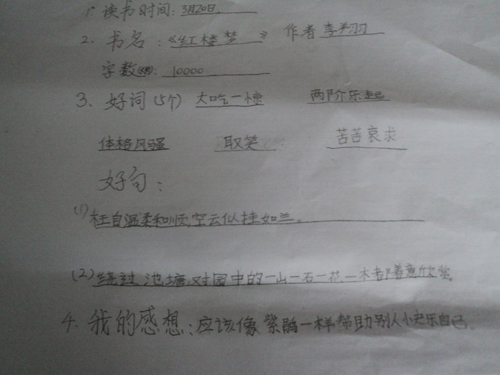 1、读书时间:3月20日
2、书名:《红楼梦》 作者 李翔羽
字数: 10000
3、好词(5个) 大吃一惊 两阶
体格风骚 取笑 苦苦哀求
好句:
(1)枉自温柔和顺,空云似桂如兰。
(2)绕过池塘,对园中的一山一石一花一木都着意欣赏
4、我的感想:应该像紫鹃一样帮助别人快乐自己.